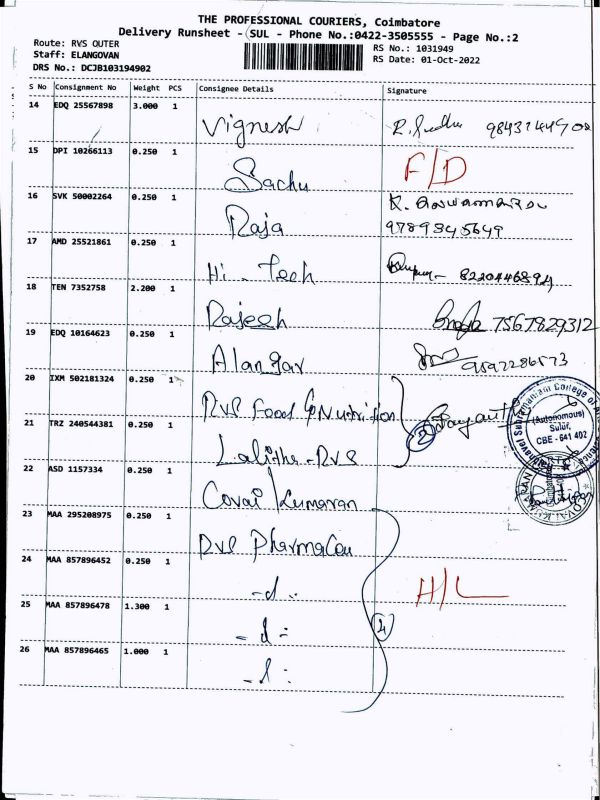 THE PROFESSIONAL COURIERS, Coimbatore
Delivery Runsheet - SUL - Phone No.:0422-3505555 - Page No.:2
Route: RVS OUTER
Staff: ELANGOVAN
DRS No.: DCJB103194902
RS No.: 1031949
RS Date: 01-Oct-2022
S No Consignment No Weight PCS Consignee Details Signature
14 EDQ 25567898 3.000 1 Vignesh
15 DPI 10266113 0.250 1 Sachu F/D
16 SVK 50002264 0.250 1 Raja 9789345649
17 AMD 25521861 0.250 1 Hi-Tech 8220446894
18 TEN 7352758 2.200 1 Rajesh 7567829312
19 EDQ 10164623 0.250 1 Alangar 9597286573
20 IXM 502181324 0.250 1 RVS Food & Nutrition
21 TRZ 240544381 0.250 1 Lalitha-RVS
22 ASD 1157334 0.250 1 Covai Kumaran
(Autonomous)
Sulur,
CBE - 641 402
23 MAA 295208975 0.250 1 RVS Pharma
24 MAA 857896452 0.250 1 -d- H/L
25 MAA 857896478 1.300 1 -d-
4
26 MAA 857896465 1.000 1 -d-